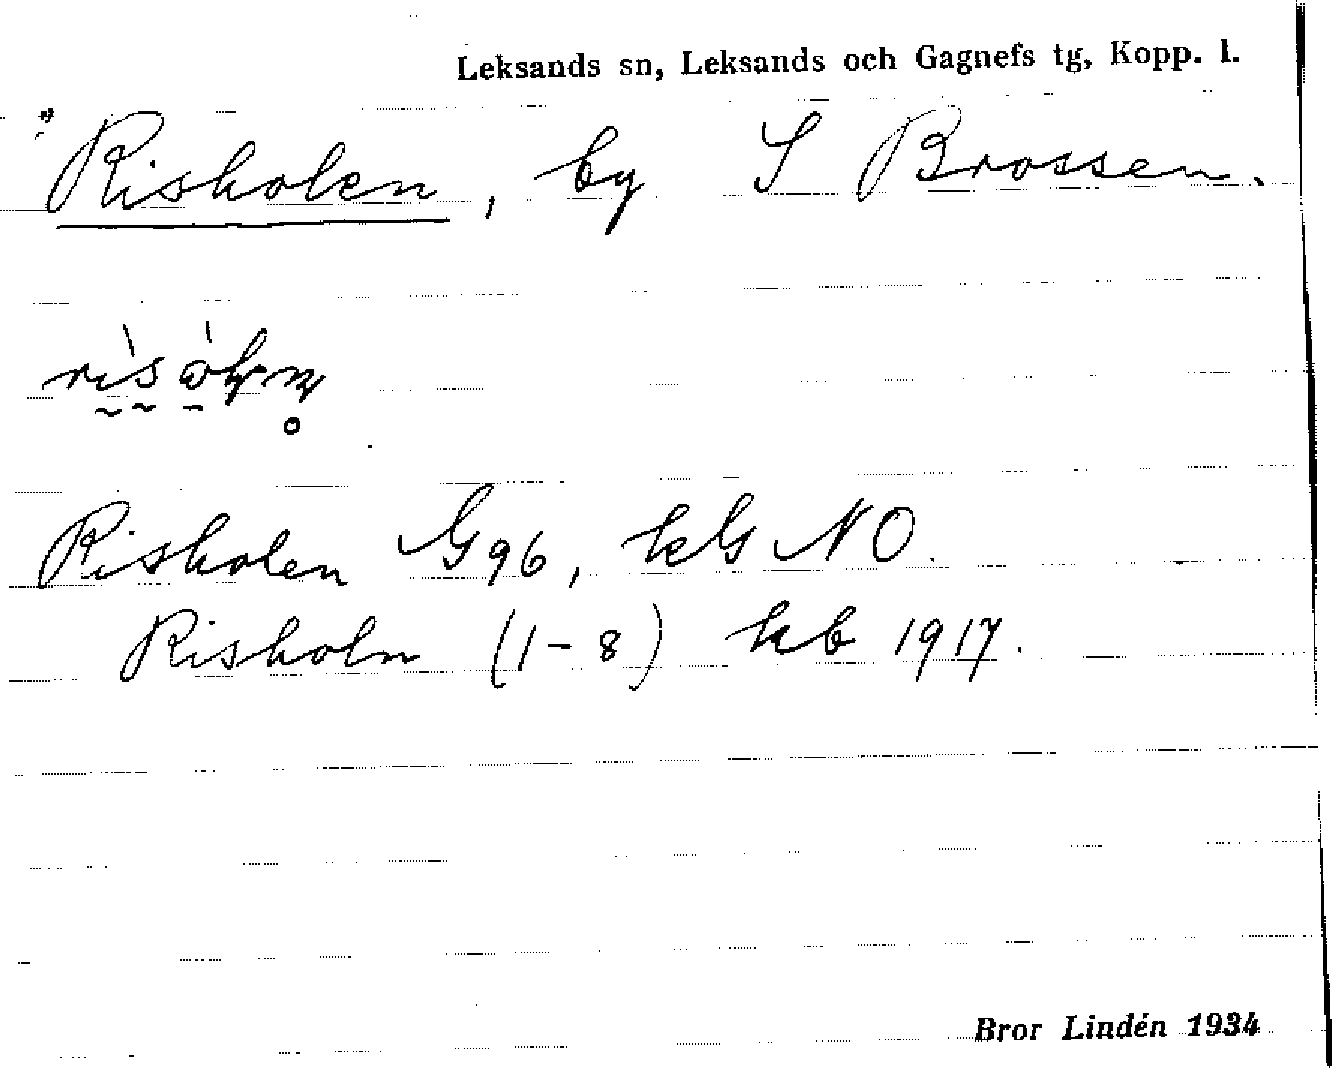 Leksands sn, Leksands och Gagnefs tg, Kopp. l.
Risholen, by S Brossen.
Risholen G96, kG NO.
Risholn (1-8) kb 1917.
Bror Lindén 1934